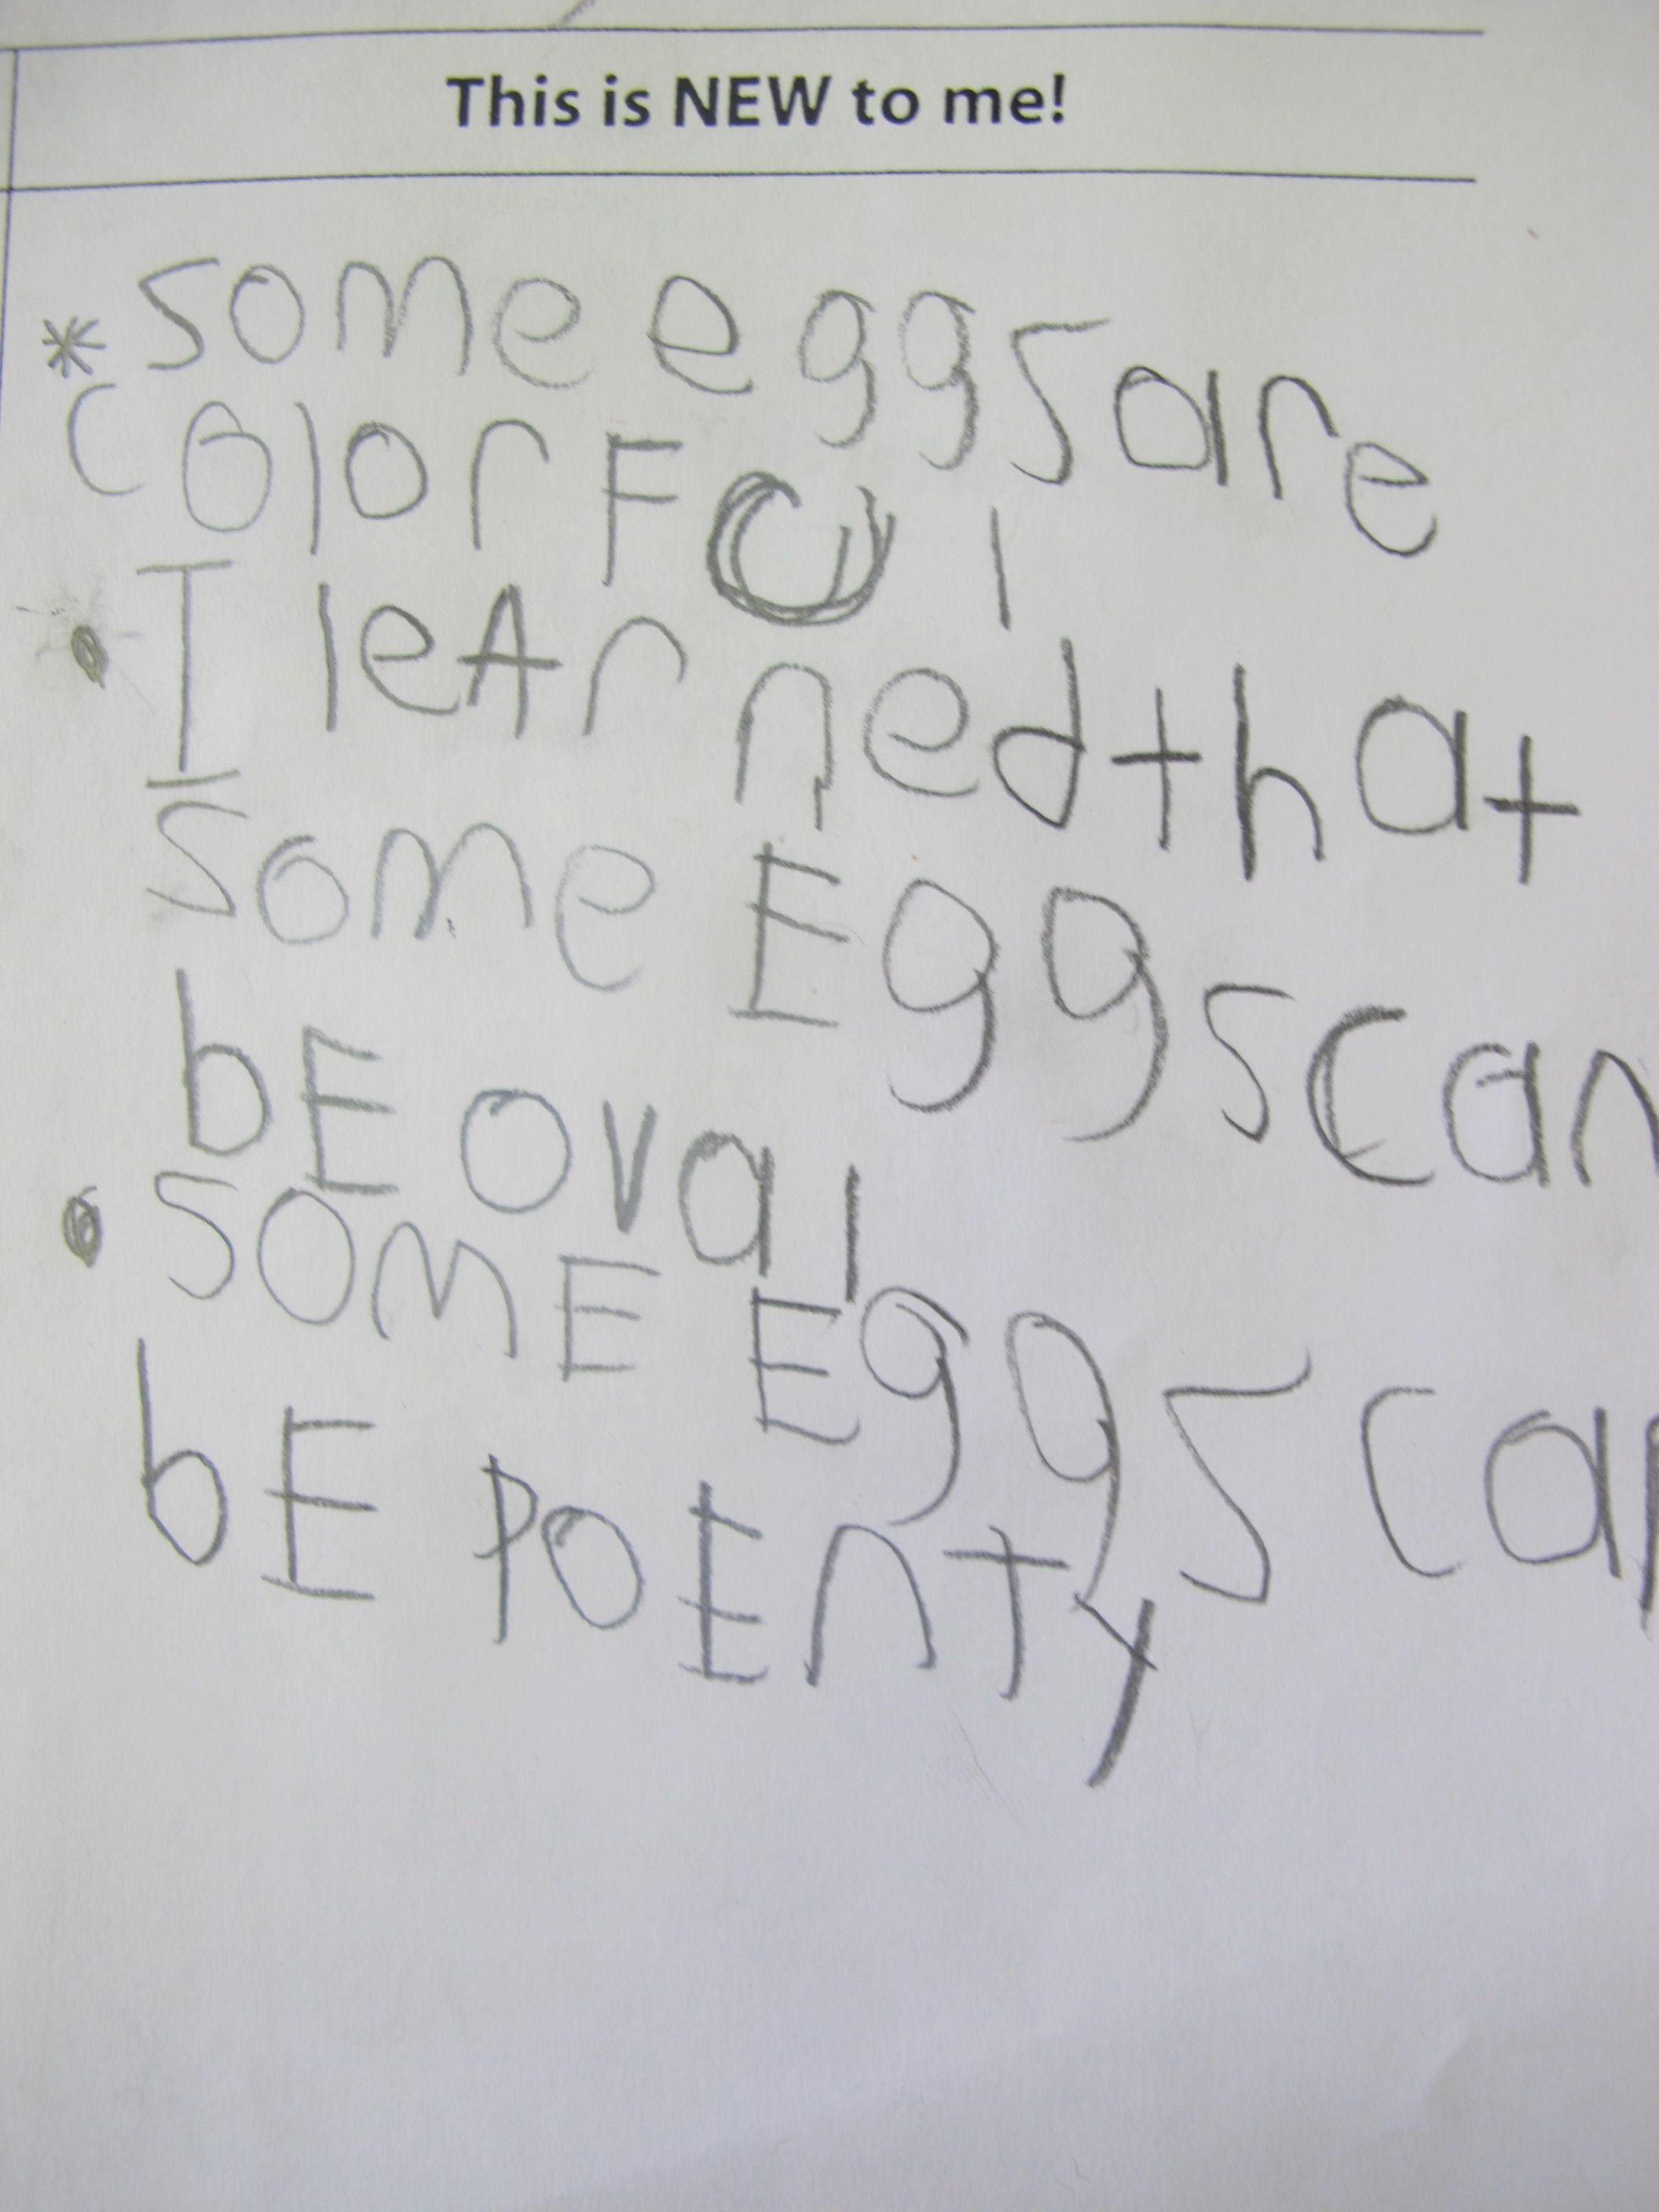 This is NEW to me!
* some eggs are
colorFul
• I leArned that
some Eggs can
bE oval
• somE Eggs can
bE poEnty